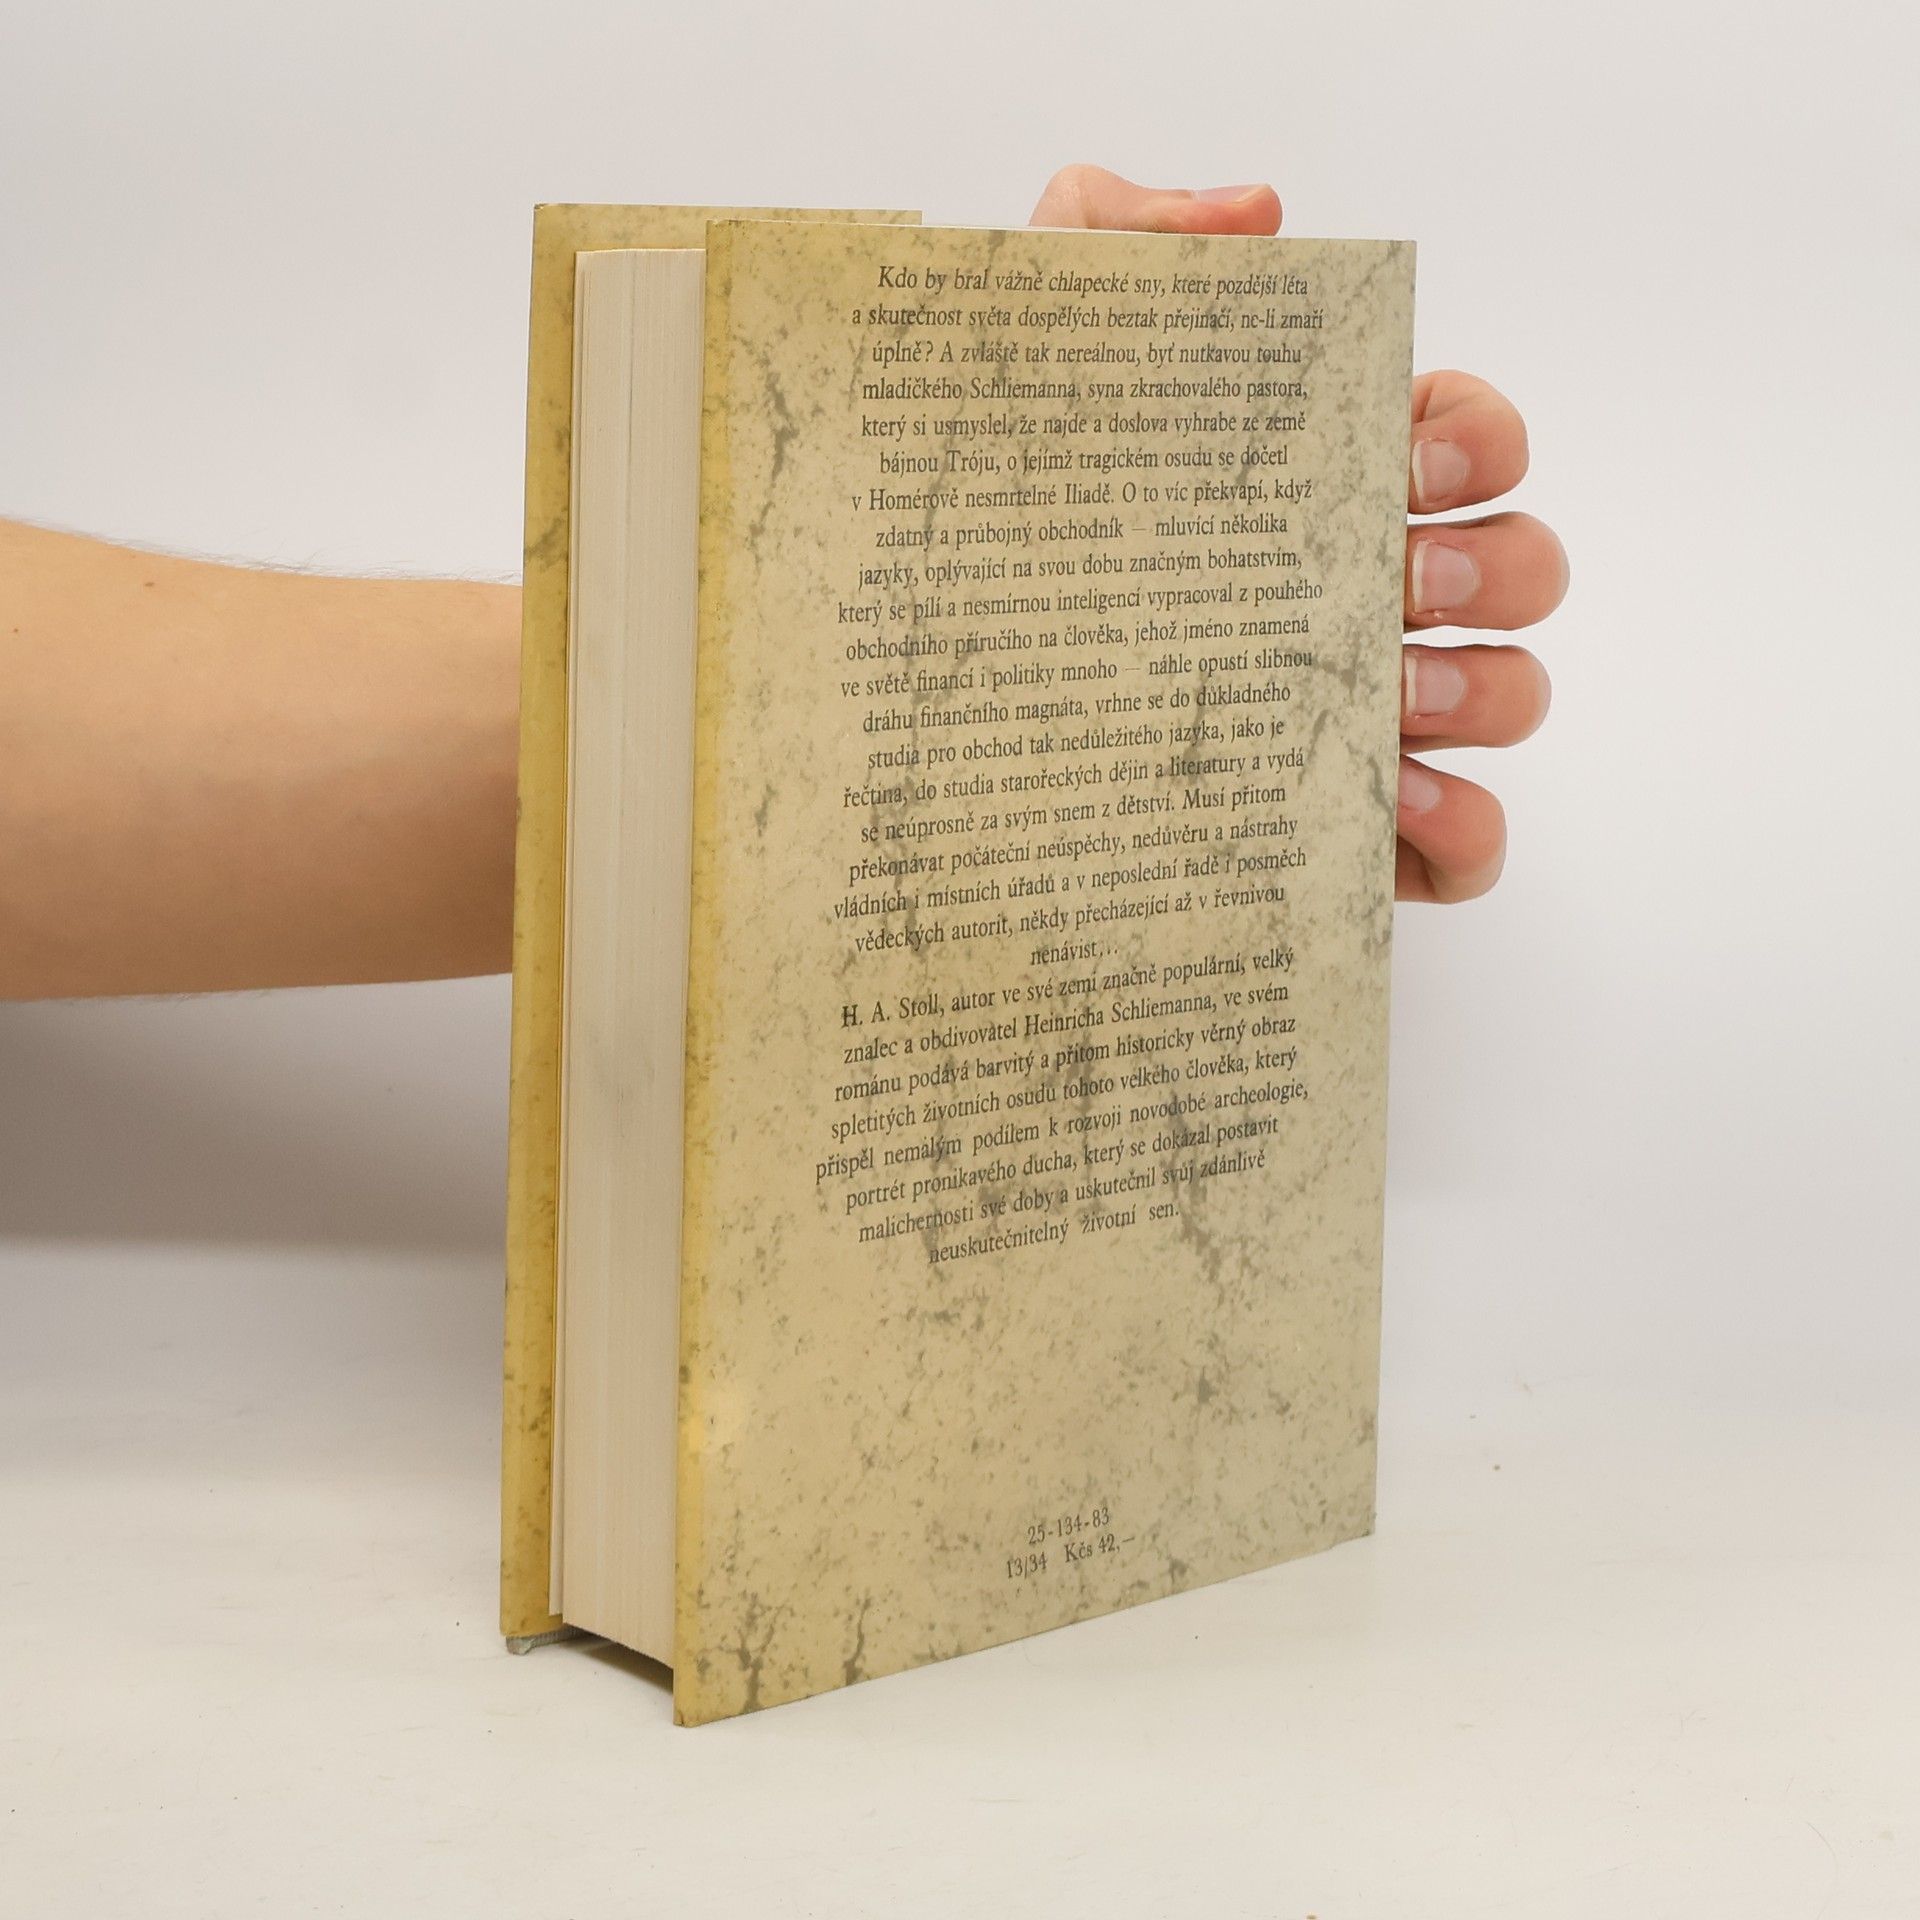 Kdo by bral vážně chlapecké sny, které pozdější léta
a skutečnost světa dospělých beztak přejinačí, ne-li zmaří
úplně? A zvláště tak nereálnou, byť nutkavou touhu
mladičkého Schliemanna, syna zkrachovalého pastora,
který si usmyslel, že najde a doslova vyhrabe ze země
bájnou Tróju, o jejímž tragickém osudu se dočetl
v Homérově nesmrtelné Iliadě. O to víc překvapí, když
zdatný a průbojný obchodník — mluvící několika
jazyky, oplývající na svou dobu značným bohatstvím,
který se pílí a nesmírnou inteligencí vypracoval z pouhého
obchodního příručího na člověka, jehož jméno znamená
ve světě financí i politiky mnoho — náhle opustí slibnou
dráhu finančního magnáta, vrhne se do důkladného
studia pro obchod tak nedůležitého jazyka, jako je
řečtina, do studia starořeckých dějin a literatury a vydá
se neúprosně za svým snem z dětství. Musí přitom
překonávat počáteční neúspěchy, nedůvěru a nástrahy
vládních i místních úřadů a v neposlední řadě i posměch
vědeckých autorit, někdy přecházející až v řevnivou
nenávist...
H. A. Stoll, autor ve své zemi značně populární, velký
znalec a obdivovatel Heinricha Schliemanna, ve svém
románu podává barvitý a přitom historicky věrný obraz
spletitých životních osudů tohoto velkého člověka, který
přispěl nemalým podílem k rozvoji novodobé archeologie,
portrét pronikavého ducha, který se dokázal postavit
malichernosti své doby a uskutečnil svůj zdánlivě
neuskutečnitelný životní sen.
25-134-83
13/34 Kčs 42,—